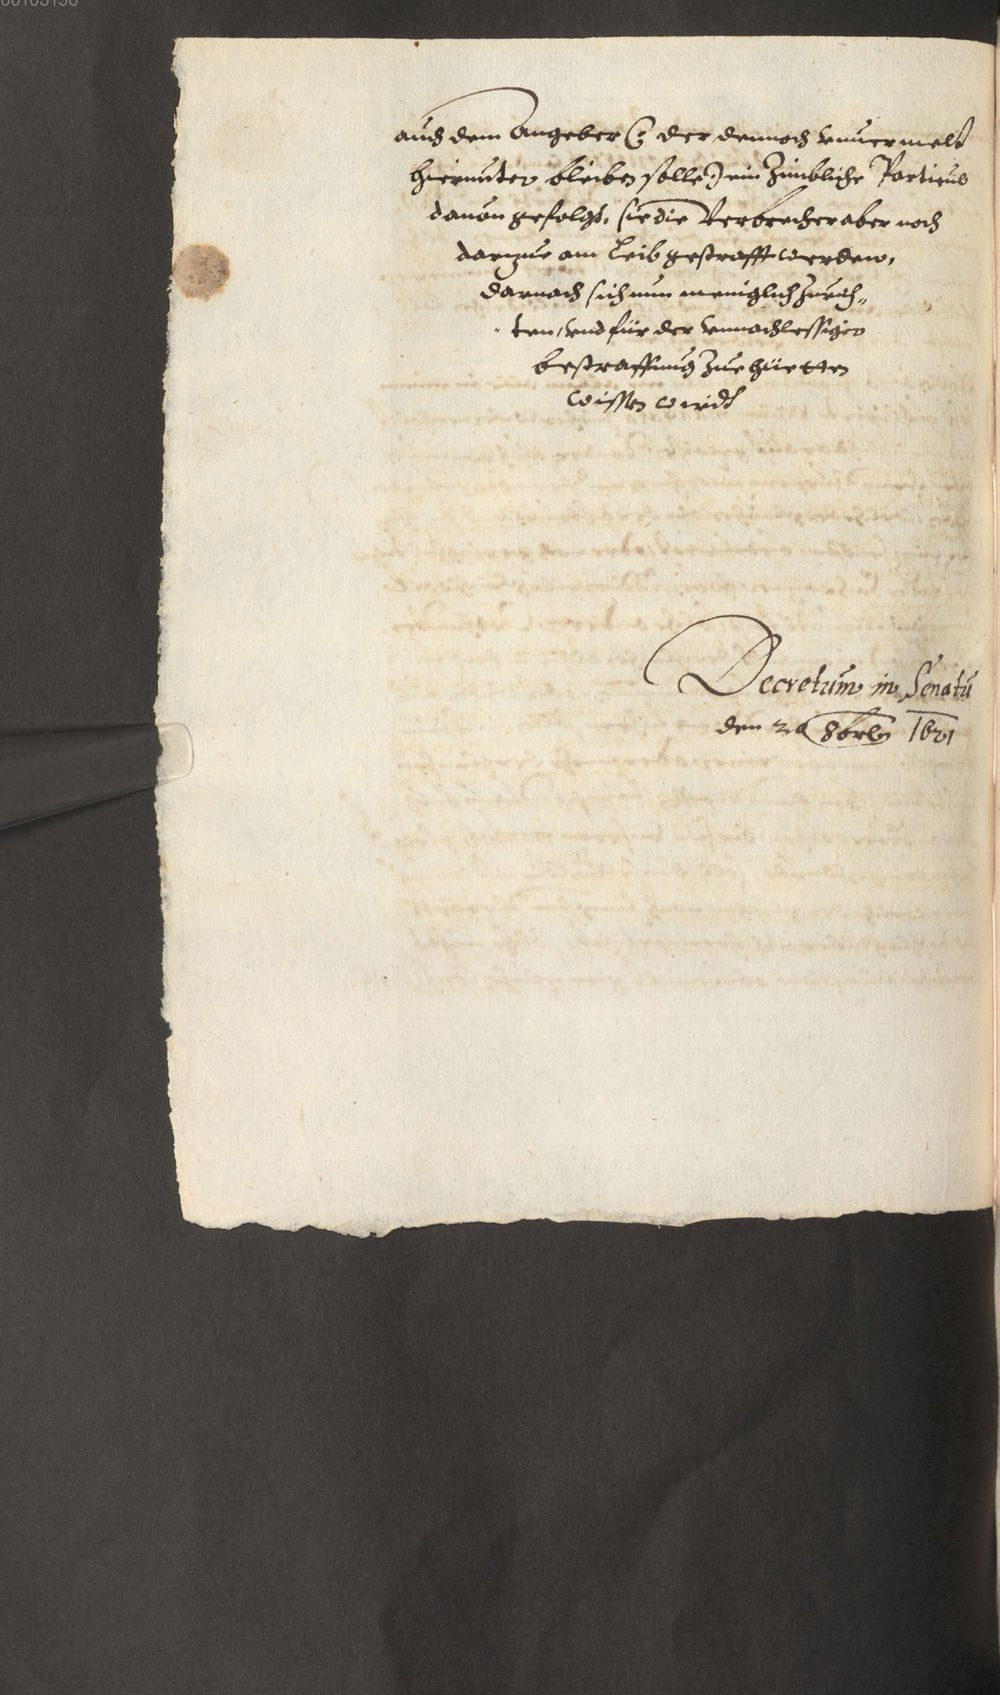 00103156
auch dem Angeber (: der dennoch vnuermelt
hierunter bleiben solle :) ein zimbliche Particul
dauon gefolgt, sie die Verbrecher aber noch
darzue am Leib gestrafft werden,
darnach sich nun meniglich zurich„
ten, vnd für der vnnachlessigen
bestraffung zue hüetten
wissen wirdt
Decretum in Senatu
den 8bris 1621